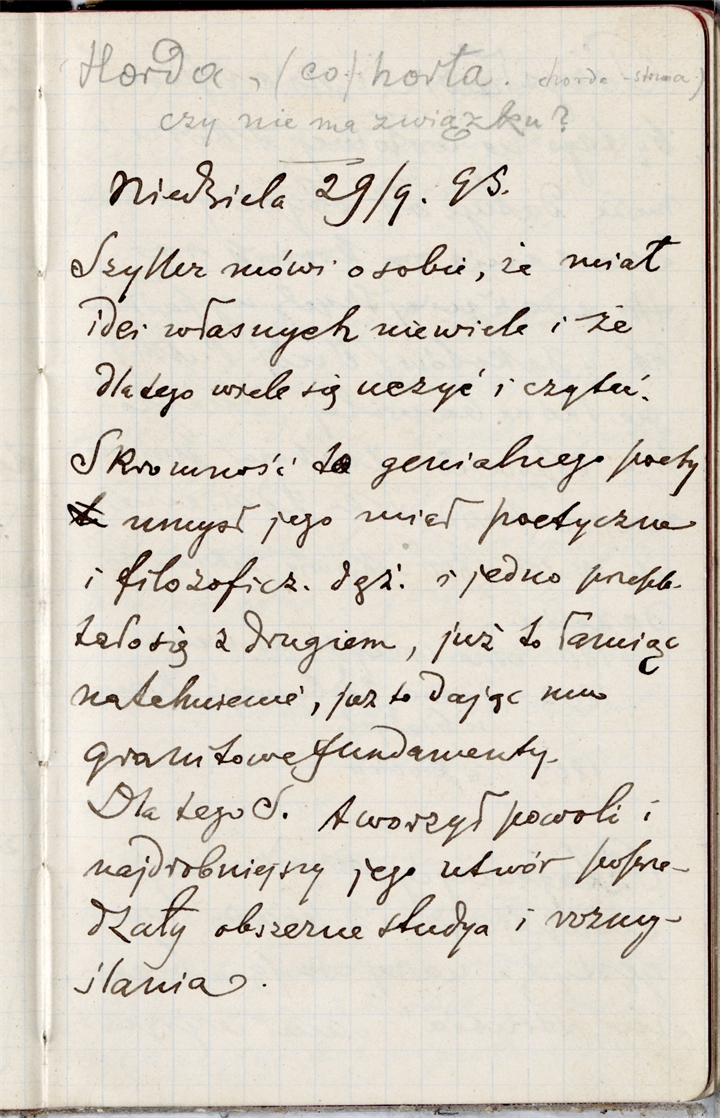 Horda, (co)horta. (chorda - struna)
czy nie ma związku?
Niedziela 29/9. 95.
Szyller mówi o sobie, że miał
idei własnych niewiele i że
dlatego wiele się uczyć i czytać.
Skromność to genialnego poety
umysł jego miał poetyczne
i filozoficz. dąż. i jedno przepla-
tało się z drugiem, już to łamiąc
natchnienie, już to dając mu
granitowe fundamenty.
Dla tego S. tworzył powoli i
najdrobniejszy jego utwór poprze-
dzały obszerne studya i rozmy-
ślania.